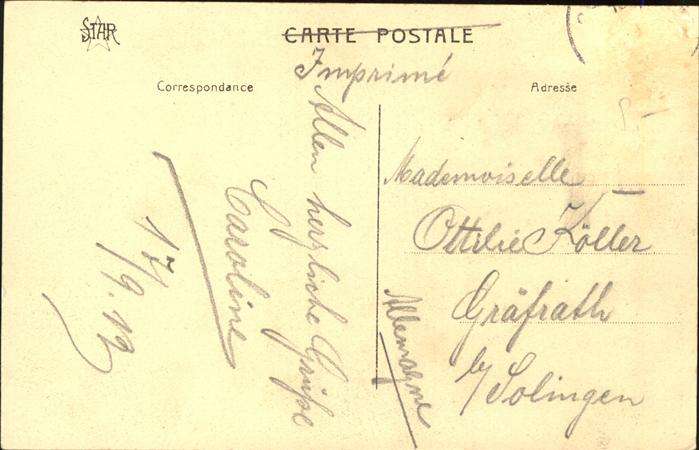 STAR
CARTE POSTALE
Imprimé
Correspondance
Adresse
Allen herzliche Grüße
Caroline
17/9.12
Mademoiselle
Ottilie Köller
Gräfrath
b/Solingen
Allemagne